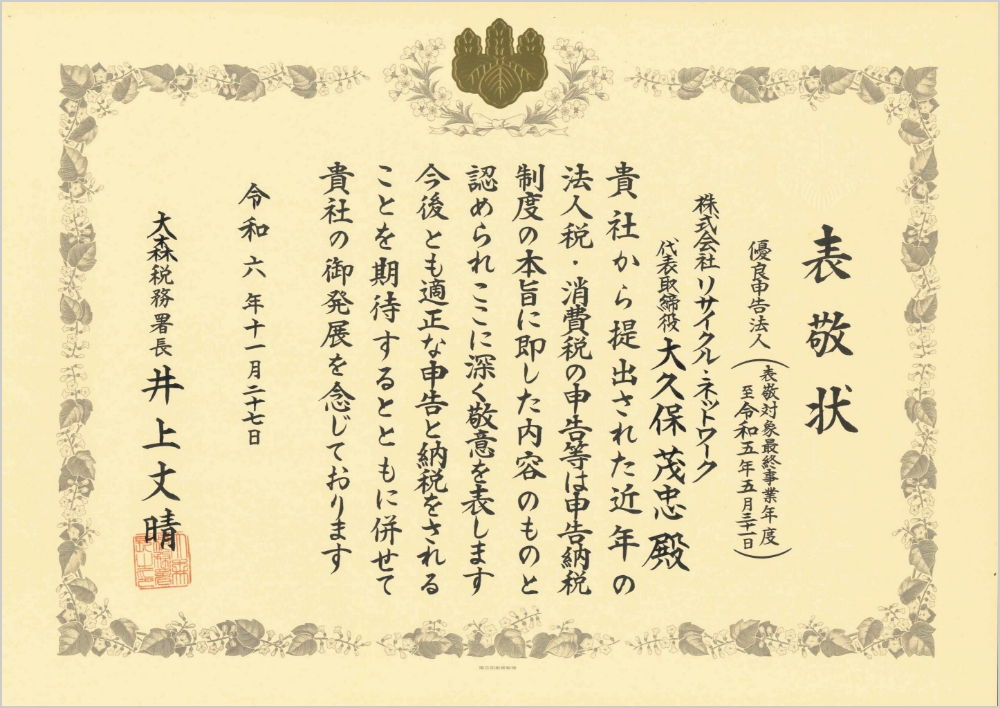 表敬状
優良申告法人
（表敬対象最終事業年度
至令和五年五月三十一日）
株式会社リサイクル・ネットワーク
代表取締役 大久保茂忠殿
貴社から提出された近年の
法人税・消費税の申告等は申告納税
制度の本旨に即した内容のものと
認められここに深く敬意を表します
今後とも適正な申告と納税をされる
ことを期待するとともに併せて
貴社の御発展を念じております
令和六年十一月二十七日
大森税務署長 井上丈晴